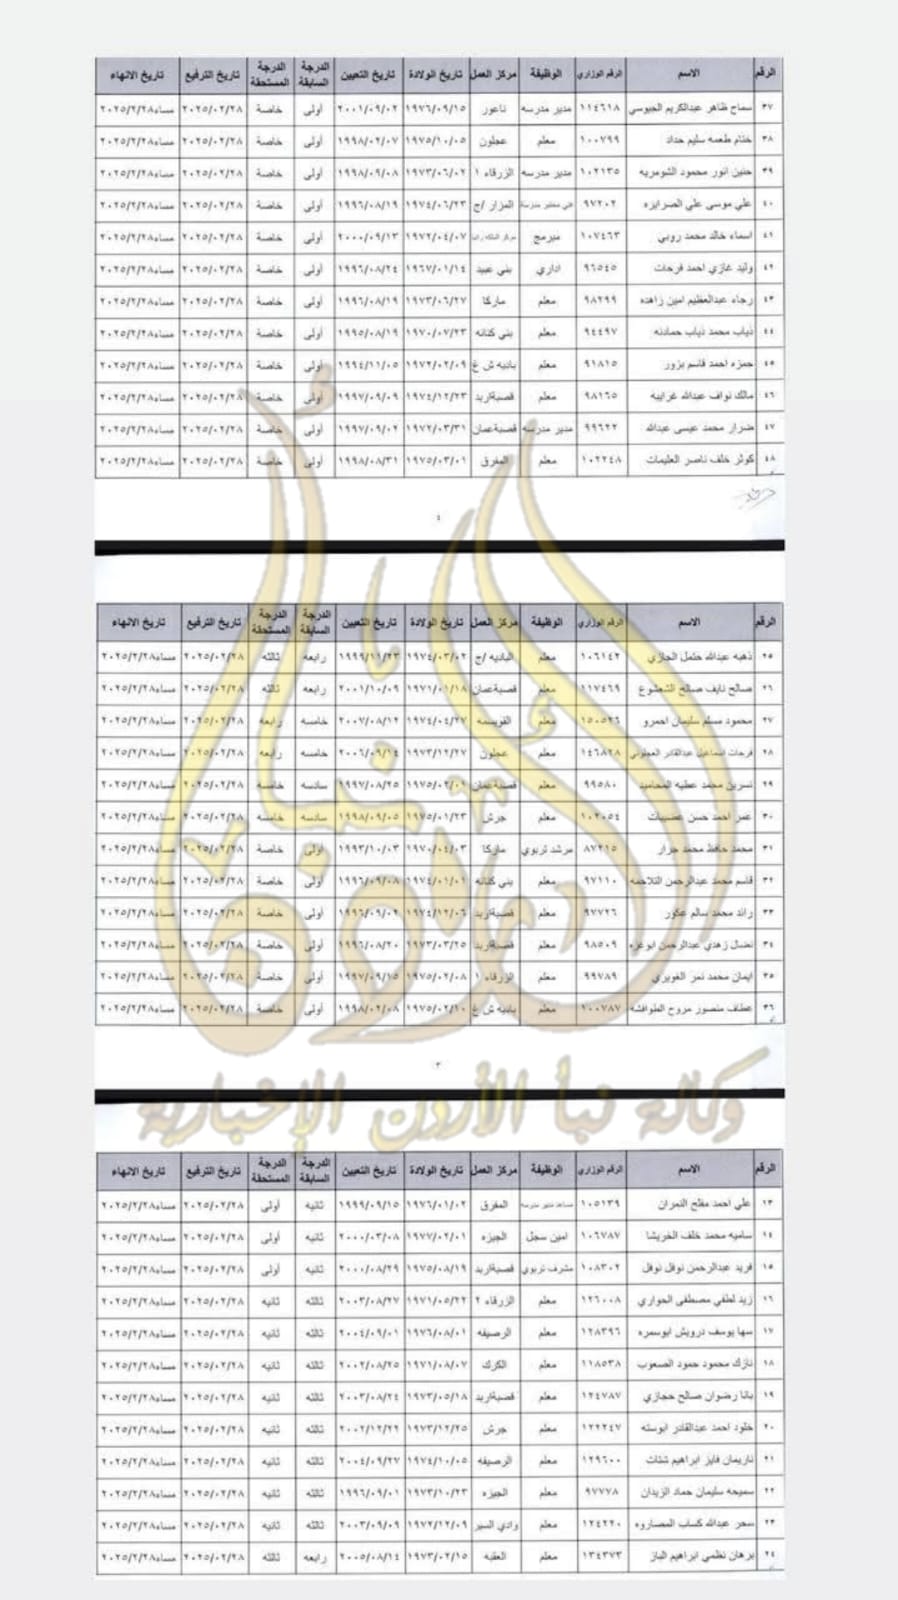 الرقم الاسم الرقم الوزاري الوظيفة مركز العمل تاريخ الولادة تاريخ التعيين الدرجة السابقة الدرجة المستحقة تاريخ الترفيع تاريخ الانهاء
٣٧ سماح ظاهر عبدالكريم الجيوسي ١١٤٦١٨ مدير مدرسه ناعور ١٩٧٦/٠٩/١٥ ٢٠٠١/٠٩/٠٢ أولى خاصة ٢٠٢٥/٠٢/٢٨ مساء٢٠٢٥/٢/٢٨
٣٨ ختام طعمه سليم حداد ١٠٠٧٩٩ معلم عجلون ١٩٧٥/١٠/٠٥ ١٩٩٨/٠٢/٠٧ أولى خاصة ٢٠٢٥/٠٢/٢٨ مساء٢٠٢٥/٢/٢٨
٣٩ حنين انور محمود الشومريه ١٠٢١٣٥ مدير مدرسه الزرقاء ١ ١٩٧٣/٠٦/٠٢ ١٩٩٨/٠٩/٠٨ أولى خاصة ٢٠٢٥/٠٢/٢٨ مساء٢٠٢٥/٢/٢٨
٤٠ علي موسى علي الصرايره ٩٧٢٠٢ المزار /ج ١٩٧٤/٠٦/٢٣ ١٩٩٦/٠٨/١٩ أولى خاصة ٢٠٢٥/٠٢/٢٨ مساء٢٠٢٥/٢/٢٨
٤١ اسماء خالد محمد روبي ١٠٧٤٦٣ مبرمج ١٩٧٢/٠٤/٠٧ ٢٠٠٠/٠٩/١٣ أولى خاصة ٢٠٢٥/٠٢/٢٨ مساء٢٠٢٥/٢/٢٨
٤٢ وليد غازي احمد فرحات ٩٦٥٤٥ اداري بني عبيد ١٩٦٧/٠١/١٤ ١٩٩٦/٠٨/٢٤ أولى خاصة ٢٠٢٥/٠٢/٢٨ مساء٢٠٢٥/٢/٢٨
٤٣ رجاء عبدالعظيم امين زاهده ٩٨٢٩٩ معلم ماركا ١٩٧٣/٠٦/٢٧ ١٩٩٦/٠٨/١٩ أولى خاصة ٢٠٢٥/٠٢/٢٨ مساء٢٠٢٥/٢/٢٨
٤٤ ذياب محمد ذياب حمادنه ٩٤٤٩٧ معلم بني كنانه ١٩٧٠/٠٧/٢٣ ١٩٩٥/٠٨/١٩ أولى خاصة ٢٠٢٥/٠٢/٢٨ مساء٢٠٢٥/٢/٢٨
٤٥ حمزه احمد قاسم بزور ٩١٨١٥ معلم باديه ش غ ١٩٧٢/٠٢/٠٩ ١٩٩٤/١١/٠٥ أولى خاصة ٢٠٢٥/٠٢/٢٨ مساء٢٠٢٥/٢/٢٨
٤٦ مالك نواف عبدالله غرايبه ٩٨١٦٥ معلم قصبةاربد ١٩٧٤/١٢/٢٣ ١٩٩٧/٠٩/٠٩ أولى خاصة ٢٠٢٥/٠٢/٢٨ مساء٢٠٢٥/٢/٢٨
٤٧ ضرار محمد عيسى عبدالله ٩٩٦٢٢ مدير مدرسه قصبةعمان ١٩٧٢/٠٣/٣١ ١٩٩٧/٠٩/٠٢ أولى خاصة ٢٠٢٥/٠٢/٢٨ مساء٢٠٢٥/٢/٢٨
٤٨ كوثر خلف ناصر العليمات ١٠٢٢٤٨ معلم المفرق ١٩٧٥/٠٣/٠١ ١٩٩٨/٠٨/٣١ أولى خاصة ٢٠٢٥/٠٢/٢٨ مساء٢٠٢٥/٢/٢٨
٤
الرقم الاسم الرقم الوزاري الوظيفة مركز العمل تاريخ الولادة تاريخ التعيين الدرجة السابقة الدرجة المستحقة تاريخ الترفيع تاريخ الانهاء
٢٥ ذهبه عبدالله حتمل الجازي ١٠٦١٤٢ معلم الباديه /ج ١٩٧٤/٠٣/٠٢ ١٩٩٩/١١/٢٣ رابعه ثالثه ٢٠٢٥/٠٢/٢٨ مساء٢٠٢٥/٢/٢٨
٢٦ صالح نايف صالح الشعشوع ١١٧٤٦٩ معلم قصبةعمان ١٩٧١/٠١/١٨ ٢٠٠١/١٠/٠٩ رابعه ثالثه ٢٠٢٥/٠٢/٢٨ مساء٢٠٢٥/٢/٢٨
٢٧ محمود مسلم سليمان احمرو ١٥٠٥٢٦ معلم القويسمه ١٩٧٤/٠٤/٢٧ ٢٠٠٧/٠٨/١٢ خامسه رابعه ٢٠٢٥/٠٢/٢٨ مساء٢٠٢٥/٢/٢٨
٢٨ فرحات اسماعيل عبدالقادر العجلوني ١٤٦٨٢٨ معلم عجلون ١٩٧٣/١٢/٢٧ ٢٠٠٦/٠٩/١٤ خامسه رابعه ٢٠٢٥/٠٢/٢٨ مساء٢٠٢٥/٢/٢٨
٢٩ نسرين محمد عطيه المحاميد ٩٩٥٨٠ معلم قصبةعمان ١٩٧٥/٠٢/٠٩ ١٩٩٧/٠٨/٢٥ سادسه خامسه ٢٠٢٥/٠٢/٢٨ مساء٢٠٢٥/٢/٢٨
٣٠ عمر احمد حسن عضيبات ١٠٢٠٥٤ معلم جرش ١٩٧٥/٠١/٢٣ ١٩٩٨/٠٩/٠٥ سادسه خامسه ٢٠٢٥/٠٢/٢٨ مساء٢٠٢٥/٢/٢٨
٣١ محمد حافظ محمد جرار ٨٧٢١٥ مرشد تربوي ماركا ١٩٧٠/٠٤/٠٣ ١٩٩٣/١٠/٠٣ أولى خاصة ٢٠٢٥/٠٢/٢٨ مساء٢٠٢٥/٢/٢٨
٣٢ قاسم محمد عبدالرحمن التلاحمه ٩٧١١٠ معلم بني كنانه ١٩٧٤/٠١/٠١ ١٩٩٦/٠٩/٠٨ أولى خاصة ٢٠٢٥/٠٢/٢٨ مساء٢٠٢٥/٢/٢٨
٣٣ رائد محمد سالم عكور ٩٧٧٢٦ معلم قصبةاربد ١٩٧٤/١٢/٠٦ ١٩٩٦/٠٩/٠٢ أولى خاصة ٢٠٢٥/٠٢/٢٨ مساء٢٠٢٥/٢/٢٨
٣٤ نضال زهدي عبدالرحمن ابوعره ٩٨٥٠٩ معلم قصبةاربد ١٩٧٣/٠٣/٢٥ ١٩٩٦/٠٨/٢٠ أولى خاصة ٢٠٢٥/٠٢/٢٨ مساء٢٠٢٥/٢/٢٨
٣٥ ايمان محمد نمر الغويري ٩٩٧٨٩ معلم الزرقاء ١ ١٩٧٥/٠٢/٠٨ ١٩٩٧/٠٩/١٥ أولى خاصة ٢٠٢٥/٠٢/٢٨ مساء٢٠٢٥/٢/٢٨
٣٦ عطاف منصور مروح الطوافشه ١٠٠٧٨٧ معلم باديه ش غ ١٩٧٥/٠٢/١٠ ١٩٩٨/٠٢/٠٨ أولى خاصة ٢٠٢٥/٠٢/٢٨ مساء٢٠٢٥/٢/٢٨
٣
وكالة نبأ الأردن الإخبارية
الرقم الاسم الرقم الوزاري الوظيفة مركز العمل تاريخ الولادة تاريخ التعيين الدرجة السابقة الدرجة المستحقة تاريخ الترفيع تاريخ الانهاء
١٣ علي احمد مفلح النمران ١٠٥١٣٩ مساعد مدير مدرسه المفرق ١٩٧٦/٠١/٠٢ ١٩٩٩/٠٩/١٥ ثانيه أولى ٢٠٢٥/٠٢/٢٨ مساء٢٠٢٥/٢/٢٨
١٤ ساميه محمد خلف الخريشا ١٠٦٧٨٧ امين سجل الجيزه ١٩٧٧/٠٢/٠١ ٢٠٠٠/٠٣/٠٨ ثانيه أولى ٢٠٢٥/٠٢/٢٨ مساء٢٠٢٥/٢/٢٨
١٥ فريد عبدالرحمن نوفل نوفل ١٠٨٣٠٢ مشرف تربوي قصبةاربد ١٩٧٥/٠٨/١٩ ٢٠٠٠/٠٨/٢٩ ثانيه أولى ٢٠٢٥/٠٢/٢٨ مساء٢٠٢٥/٢/٢٨
١٦ زيد لطفي مصطفى الحواري ١٢٦٠٠٨ معلم الزرقاء ٢ ١٩٧١/٠٥/٢٢ ٢٠٠٣/٠٨/٢٧ ثالثه ثانيه ٢٠٢٥/٠٢/٢٨ مساء٢٠٢٥/٢/٢٨
١٧ سها يوسف درويش ابوسمره ١٢٨٣٩٦ معلم الرصيفه ١٩٧٦/٠٨/٠١ ٢٠٠٤/٠٩/٠١ ثالثه ثانيه ٢٠٢٥/٠٢/٢٨ مساء٢٠٢٥/٢/٢٨
١٨ نازك محمود حمود الصعوب ١١٨٥٣٨ معلم الكرك ١٩٧١/٠٨/٠٧ ٢٠٠٢/٠٨/٢٥ ثالثه ثانيه ٢٠٢٥/٠٢/٢٨ مساء٢٠٢٥/٢/٢٨
١٩ بانا رضوان صالح حجازي ١٢٤٧٨٧ معلم قصبةاربد ١٩٧٣/٠٥/١٨ ٢٠٠٣/٠٨/٢٤ ثالثه ثانيه ٢٠٢٥/٠٢/٢٨ مساء٢٠٢٥/٢/٢٨
٢٠ خلود احمد عبدالقادر ابوسته ١٢٢٢٤٧ معلم جرش ١٩٧٣/١٢/٢٥ ٢٠٠٢/١٢/٢٢ ثالثه ثانيه ٢٠٢٥/٠٢/٢٨ مساء٢٠٢٥/٢/٢٨
٢١ ناريمان فايز ابراهيم شتات ١٢٩٦٠٠ معلم الرصيفه ١٩٧٤/١٠/٠٥ ٢٠٠٤/٠٩/٢٧ ثالثه ثانيه ٢٠٢٥/٠٢/٢٨ مساء٢٠٢٥/٢/٢٨
٢٢ سميحه سليمان حماد الزيدان ٩٧٧٧٨ معلم الجيزه ١٩٧٣/١٠/٢٣ ١٩٩٦/٠٩/٠١ ثالثه ثانيه ٢٠٢٥/٠٢/٢٨ مساء٢٠٢٥/٢/٢٨
٢٣ سحر عبدالله كساب المصاروه ١٢٤٢٢٠ معلم وادي السير ١٩٧٢/١٢/٠٩ ٢٠٠٣/٠٩/٠٩ ثالثه ثانيه ٢٠٢٥/٠٢/٢٨ مساء٢٠٢٥/٢/٢٨
٢٤ برهان نظمي ابراهيم الباز ١٣٤٣٧٣ معلم العقبه ١٩٧٣/٠٢/١٥ ٢٠٠٥/٠٨/١٤ رابعه ثالثه ٢٠٢٥/٠٢/٢٨ مساء٢٠٢٥/٢/٢٨